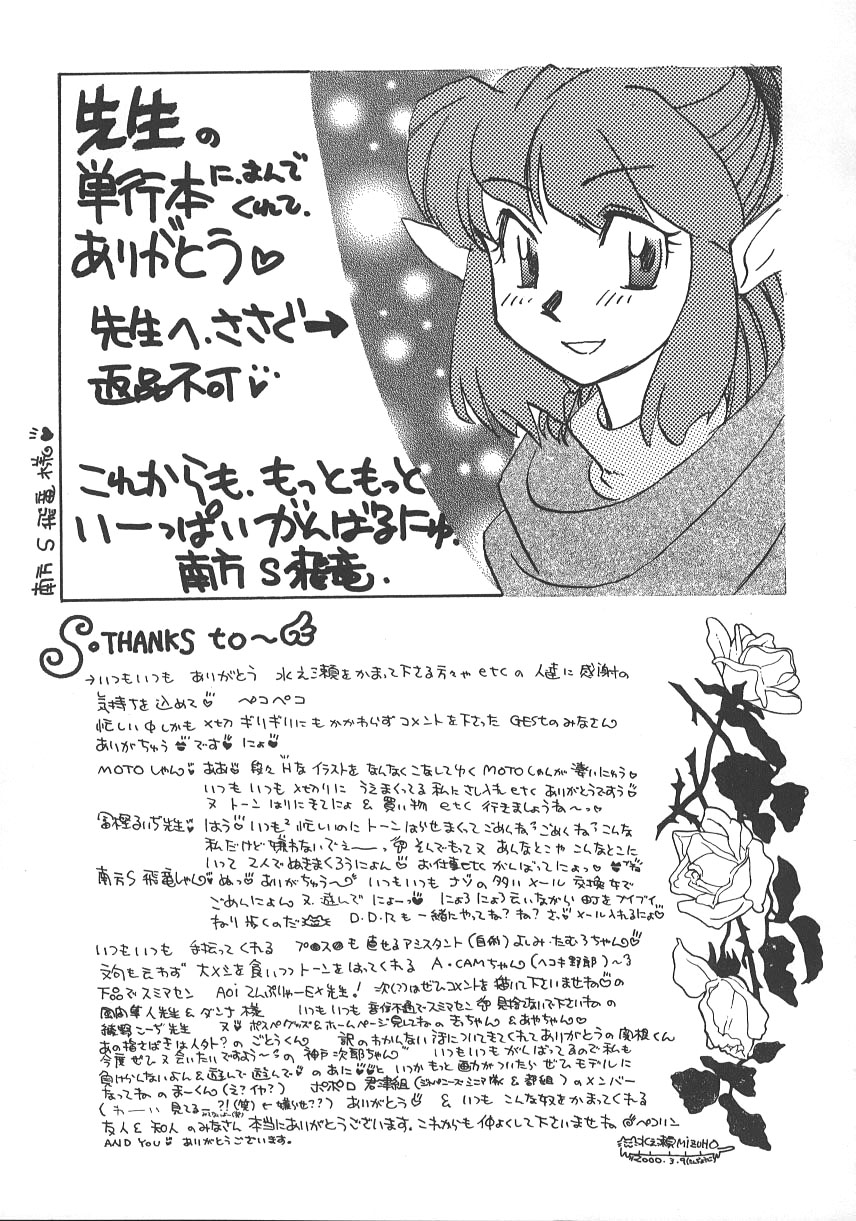 先生の
単行本に、よんで
くれて、
ありがとう♡
先生へ、ささぐ→
返品不可♡
これからも、もっともっと
いーっぱいがんばるにゅ。
南方S飛竜.
南方S飛竜様♥
S.THANKS to〜
→いつもいつも ありがとう 水之瀬をかまって下さる方々や etcの 人達に感謝の
気持ちを込めて♥ ペコペコ
忙しい中しかも〆切ギリギリにもかかわらずコメントを下さった GESTのみなさん
ありがちゅう♥です♥ にょ♥
MOTOしゃん♥ ああ♥ 段々Hなイラストをなんなくこなしてゆく MOTOしゃんが凄いにゃう♥
いつも いつも 〆切りに うえまくってる 私に さし入れ etc ありがとうですう♥
又 トーン はりにきてにょ & 買い物 etc 行きましょうね〜っ♥
るいぢ先生♥ はう♥ いつも² 忙しいのに トーン はらせまくって ごめんね? ごめくね? こんな
私だけど 嫌わないでぇーっ そんでもって又 あんなとこや こんなとこに
いって 2人で ぬきまくろうにょん♥ お仕事etc がんばってにょっ♥
南方S飛竜しゃん♥ ぬっ♥ ありがちゅう〜♥ いつもいつも ナゾの多い メール 交換 女で
ごめんにょん 又 遊んで にょーっ♥ にょろにょろ 云いながら 町を ブイブイ
ねり歩くのだ D.D.Rも 一緒にやってね? ね? さっ♥メール入れるにょ♥
いつもいつも 手伝ってくれる プ●ス●も 直せるアシスタント(自称) よしみ・たむろちゃん♥
文句も云わず 大メシを食いつつトーンをはってくれる A・CAMちゃん(ヘコキ野郎)〜3
下品でスミマセン Aoi てんぷりゃーEX先生! 次(?)はぜひコメントを描いて下さいませね♥の
隼人先生&ダンナ様 いつも いつも 音信不通でスミマセン 見捨てないで下さいねの
綾野こーぢ先生 又♥ ポスペグッズ&ホームページ見してねの もっちゃん & あやちゃん♥
あの指さばきは人外?の ごとうくん 訳のわかんない 話についてきてくれてありがとうの 関根くん
今度 ぜひ 又 会いたいですよう〜の 神戸次郎ちゃん いつもいつも がんばってるので 私も
負けらんないよん & 遊んで 遊んで♥の あに♥♥と いつか もっと 画力がついたら ぜひ モデルに
なってねの まーくん (え?イヤ?) ポポロ 君津組 (ジャパニーズ・ミニマ隊 & 都組) の メンバー
(わーい 見てる ?!(笑) ← 嫌らせ??) ありがとう♥ & いつも こんな奴を かまってくれる
友人 & 知人の みなさん 本当にありがとうございます。 これからも 仲よくして下さいませね ペコリン
AND YOU♥ ありがとうございます。
水之瀬MIZUHO
2000.3.9